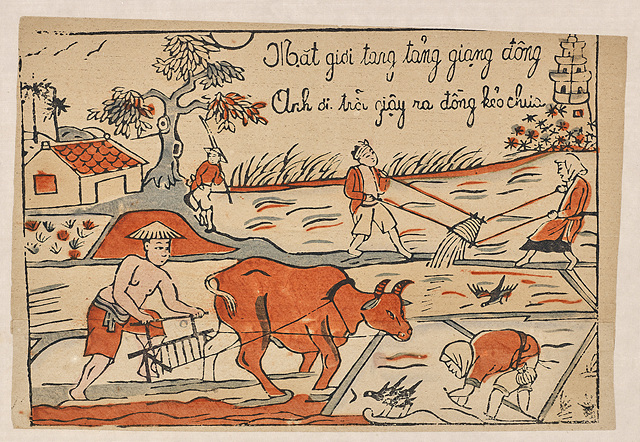 Măt giời tang tảng giạng đông
Anh ơi trỗi giậy ra đồng kẻo chưa